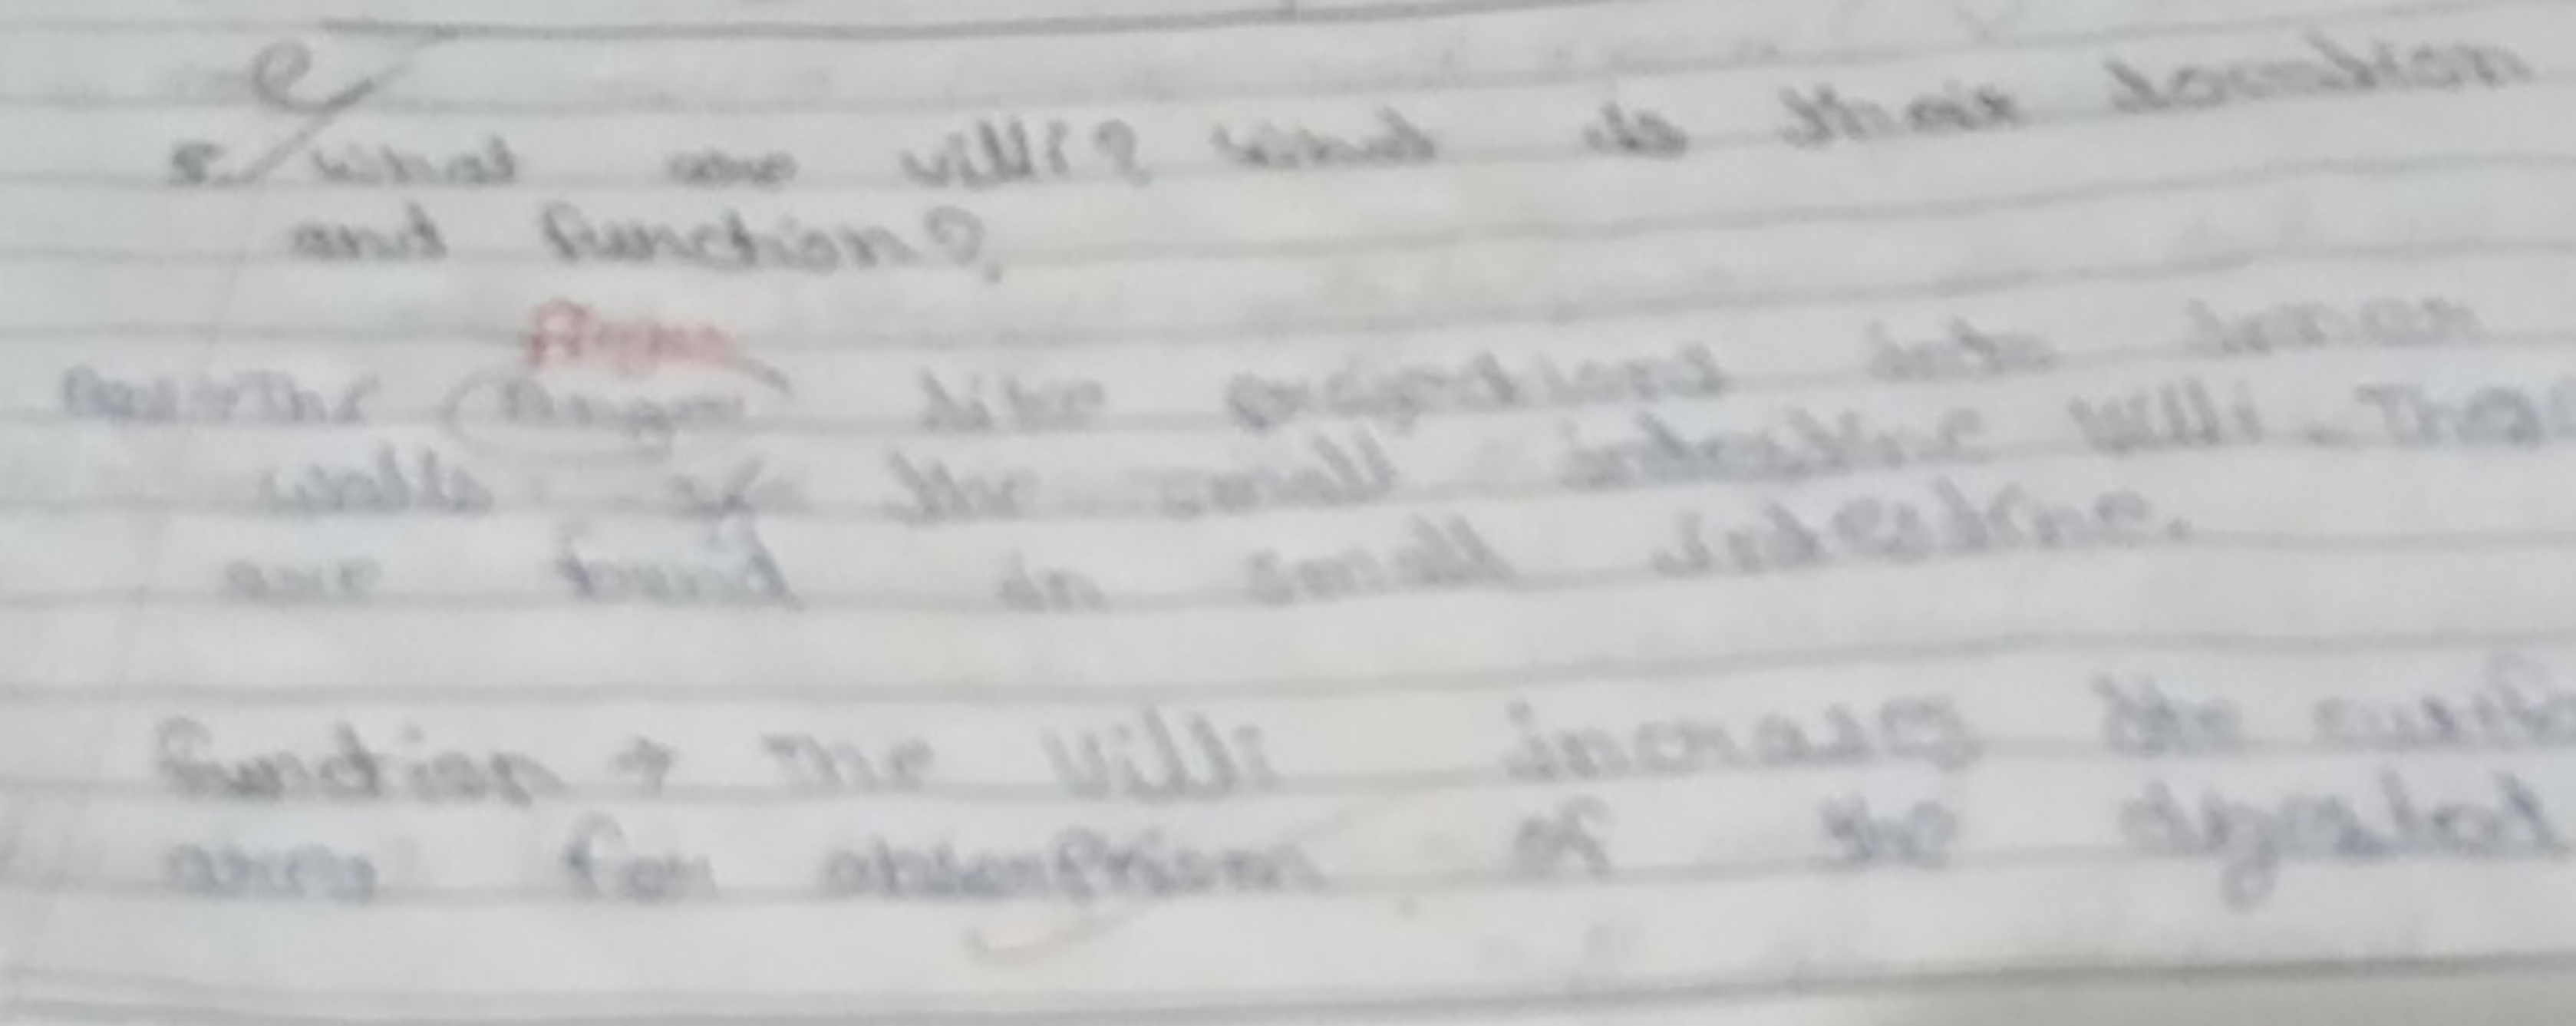 e
5/ what are villi? what is their location
and function?
Finger
like projections into inner
walls of the small intestine villi. Thay
are found in small intestine.
function → The villi increase the surfa
area for absorption of the digested